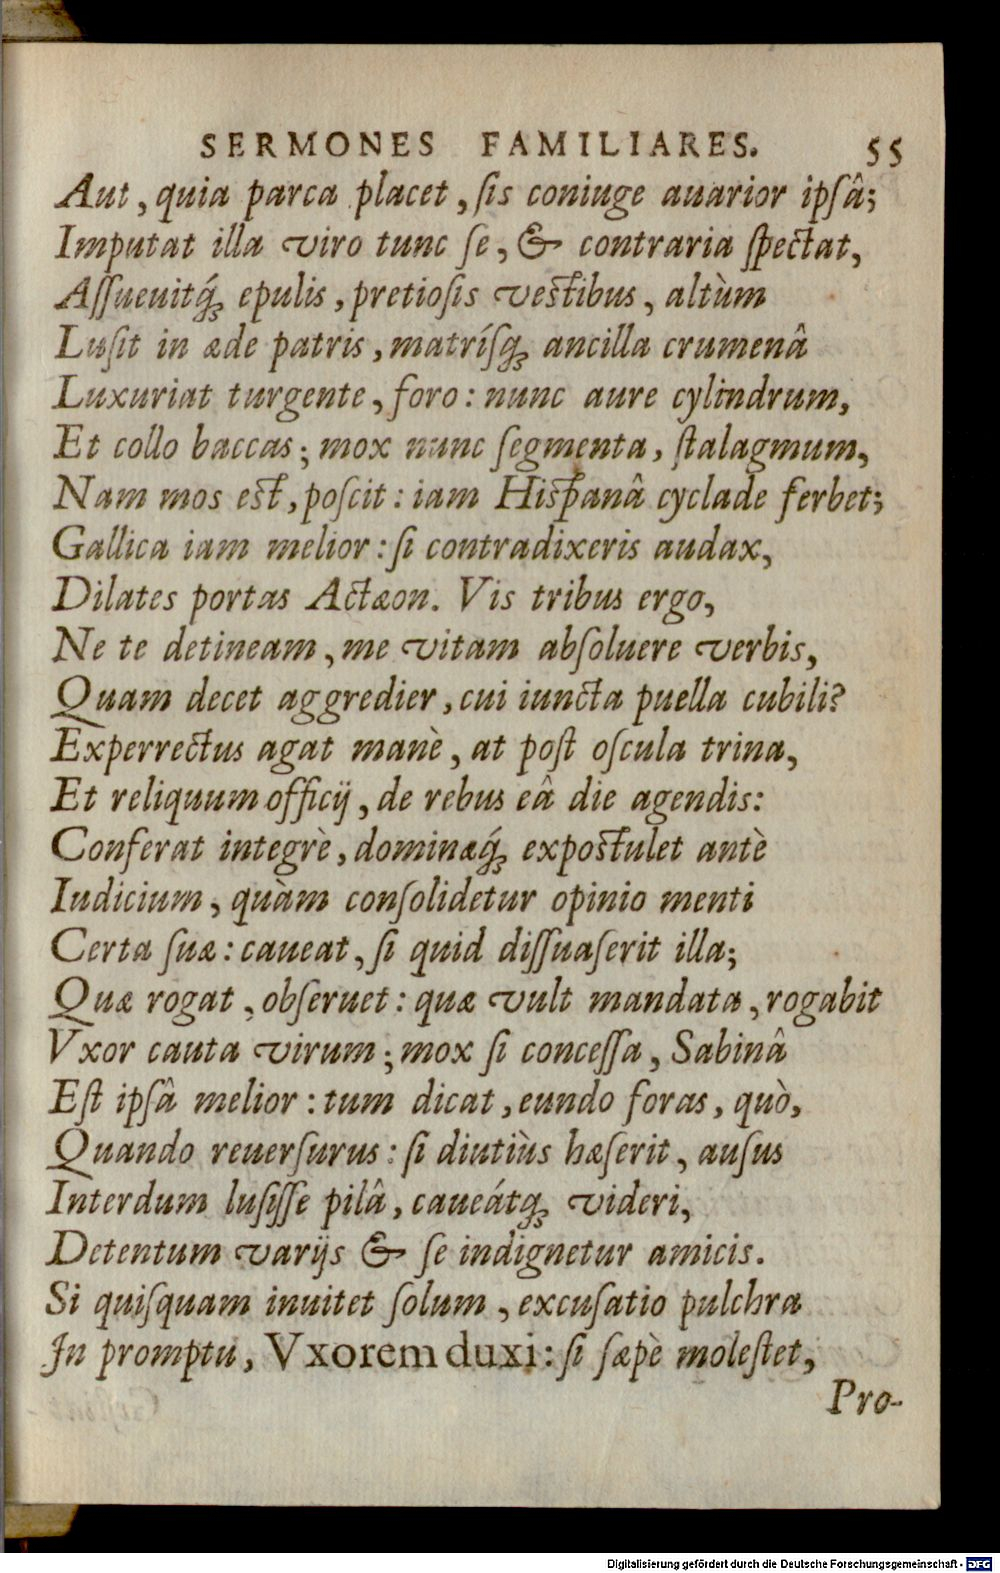 SERMONES FAMILIARES. 55
Aut, quia parca placet, ſis coniuge auarior ipſâ;
Imputat illa viro tunc ſe, & contraria ſpectat,
Aſſueuitq́ꝫ epulis, pretioſis veſtibus, altùm
Luſit in æde patris, matríſqꝫ ancilla crumenâ
Luxuriat turgente, foro: nunc aure cylindrum,
Et collo baccas; mox nunc ſegmenta, ſtalagmum,
Nam mos eſt, poſcit: iam Hiſpanâ cyclade ferbet;
Gallica iam melior: ſi contradixeris audax,
Dilates portas Actæon. Vis tribus ergo,
Ne te detineam, me vitam abſoluere verbis,
Quam decet aggredier, cui iuncta puella cubili?
Experrectus agat manè, at poſt oſcula trina,
Et reliquum officij, de rebus eâ die agendis:
Conferat integrè, dominæq́ꝫ expoſtulet antè
Iudicium, quàm conſolidetur opinio menti
Certa ſuæ: caueat, ſi quid diſſuaſerit illa;
Quæ rogat, obſeruet: quæ vult mandata, rogabit
Vxor cauta virum; mox ſi conceſſa, Sabinâ
Eſt ipſâ melior: tum dicat, eundo foras, quò,
Quando reuerſurus: ſi diutiùs hæſerit, auſus
Interdum luſiſſe pilâ, caueátqꝫ videri,
Detentum varijs & ſe indignetur amicis.
Si quiſquam inuitet ſolum, excuſatio pulchra
In promptu, Vxorem duxi: ſi ſæpè moleſtet,
Pro-
Digitalisierung gefördert durch die Deutsche Forschungsgemeinschaft - DFG